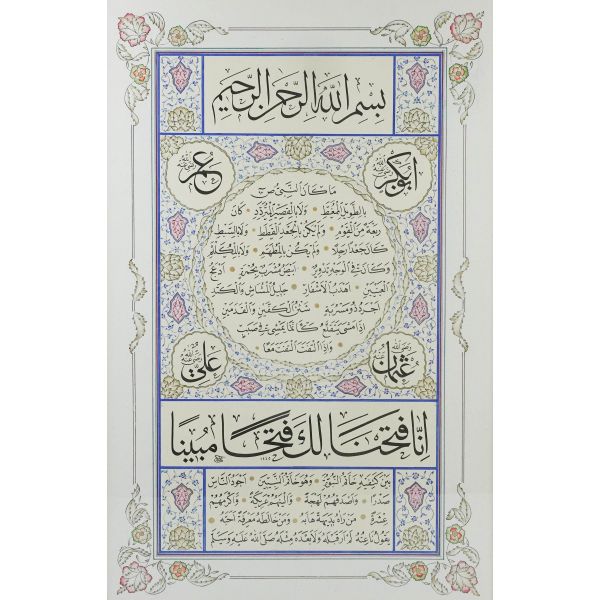 بسم الله الرحمن الرحيم
ابوبكر رضي الله عنه
عمر رضي الله عنه
ما كان النبي ص
بالطويل الممغط ولا بالقصير المتردد كان
ربعة من القوم ولم يكن بالجعد القطط ولا بالسبط
كان جعدا رجلا ولم يكن بالمطهم ولا بالمكلثم
وكان في الوجه تدوير ابيض مشرب بحمرة ادعج
العينين اهدب الاشفار جليل المشاش والكتد
اجرد ذو مسربة شثن الكفين والقدمين
اذا مشى يتقلع كانما يمشي في صبب
واذا التفت التفت معا
عثمان رضي الله عنه
علي رضي الله عنه
انا فتحنا لك فتحا مبينا
بين كتفيه خاتم النبوة وهو خاتم النبيين اجود الناس
صدرا واصدقهم لهجة والينهم عريكة واكرمهم
عشرة من رآه بديهة هابه ومن خالطه معرفة احبه
يقول ناعته لم ار قبله ولا بعده مثله صلى الله عليه وسلم